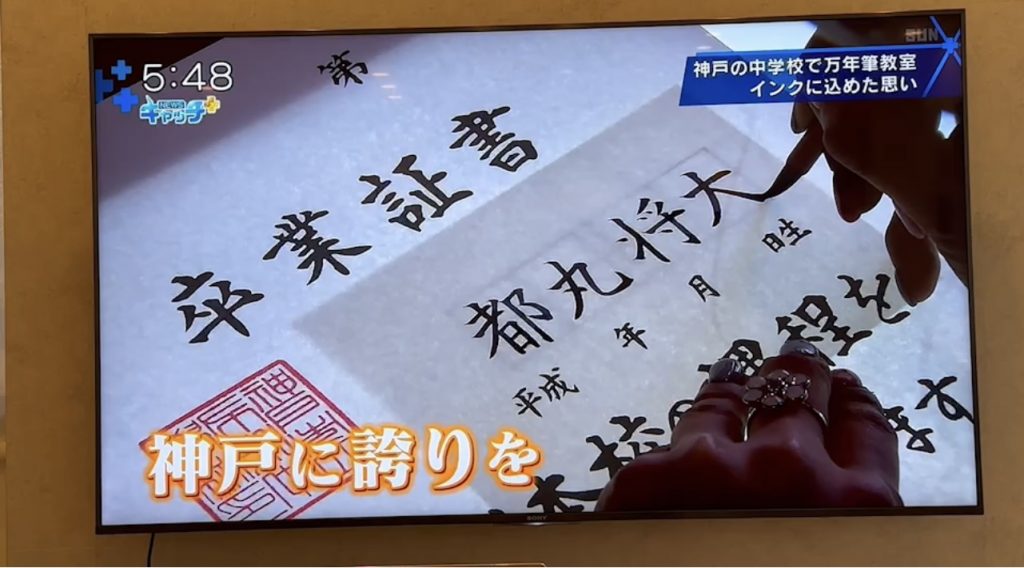 5:48
NEWS
キャッチ+
SUN
神戸の中学校で万年筆教室
インクに込めた思い
第
卒業証書
都丸将大
平成 年 月 日生
課程を
本校の
ます
神戸に誇りを
SONY